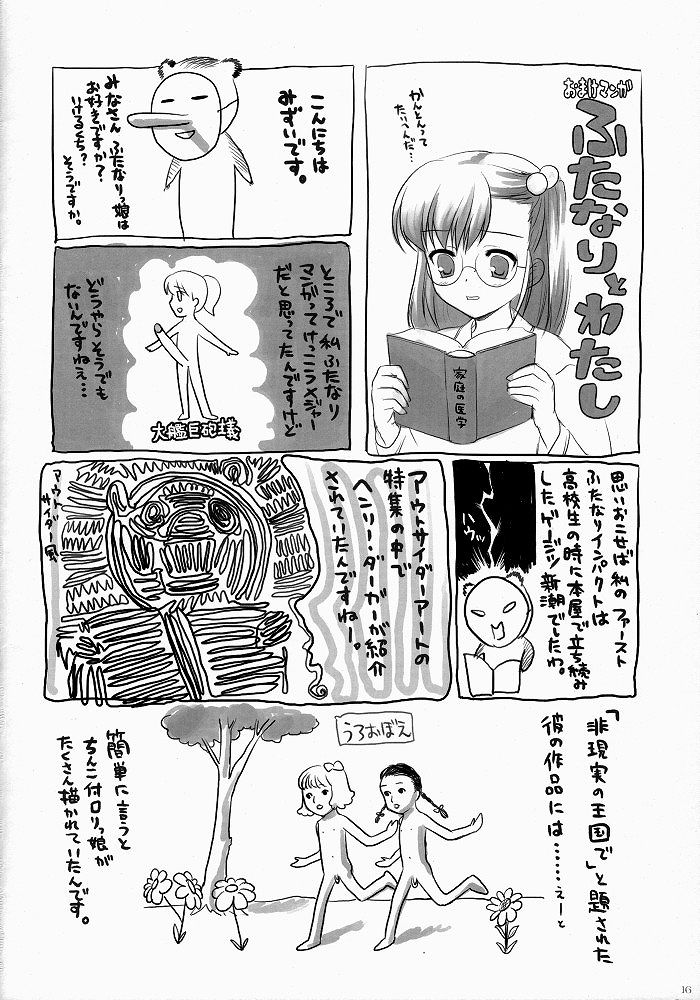 おまけマンガ
ふたなりとわたし
かんとんって
たいへんだ…
家庭の医学
こんにちは
みずいです。
みなさん ふたなりっ娘は
お好きですか？
いけるくち？
そうですか。
ところで私ふたなり
マンガってけっこうメジャー
だと思ってたんですけど
どうやらそうでも
ないんですねえ…
大艦巨砲主義
思いおこせば私のファースト
ふたなりインパクトは
高校生の時に本屋で立ち読み
したゲージツ新潮でしたわ。
アウトサイダーアートの
特集の中で
ヘンリー・ダーガーが紹介
されていたんですねー。
アウト
サイダー風
「非現実の王国で」と題された
彼の作品には……えーと
うろおぼえ
簡単に言うと
ちんこ付ロリっ娘が
たくさん描かれていたんです。
16